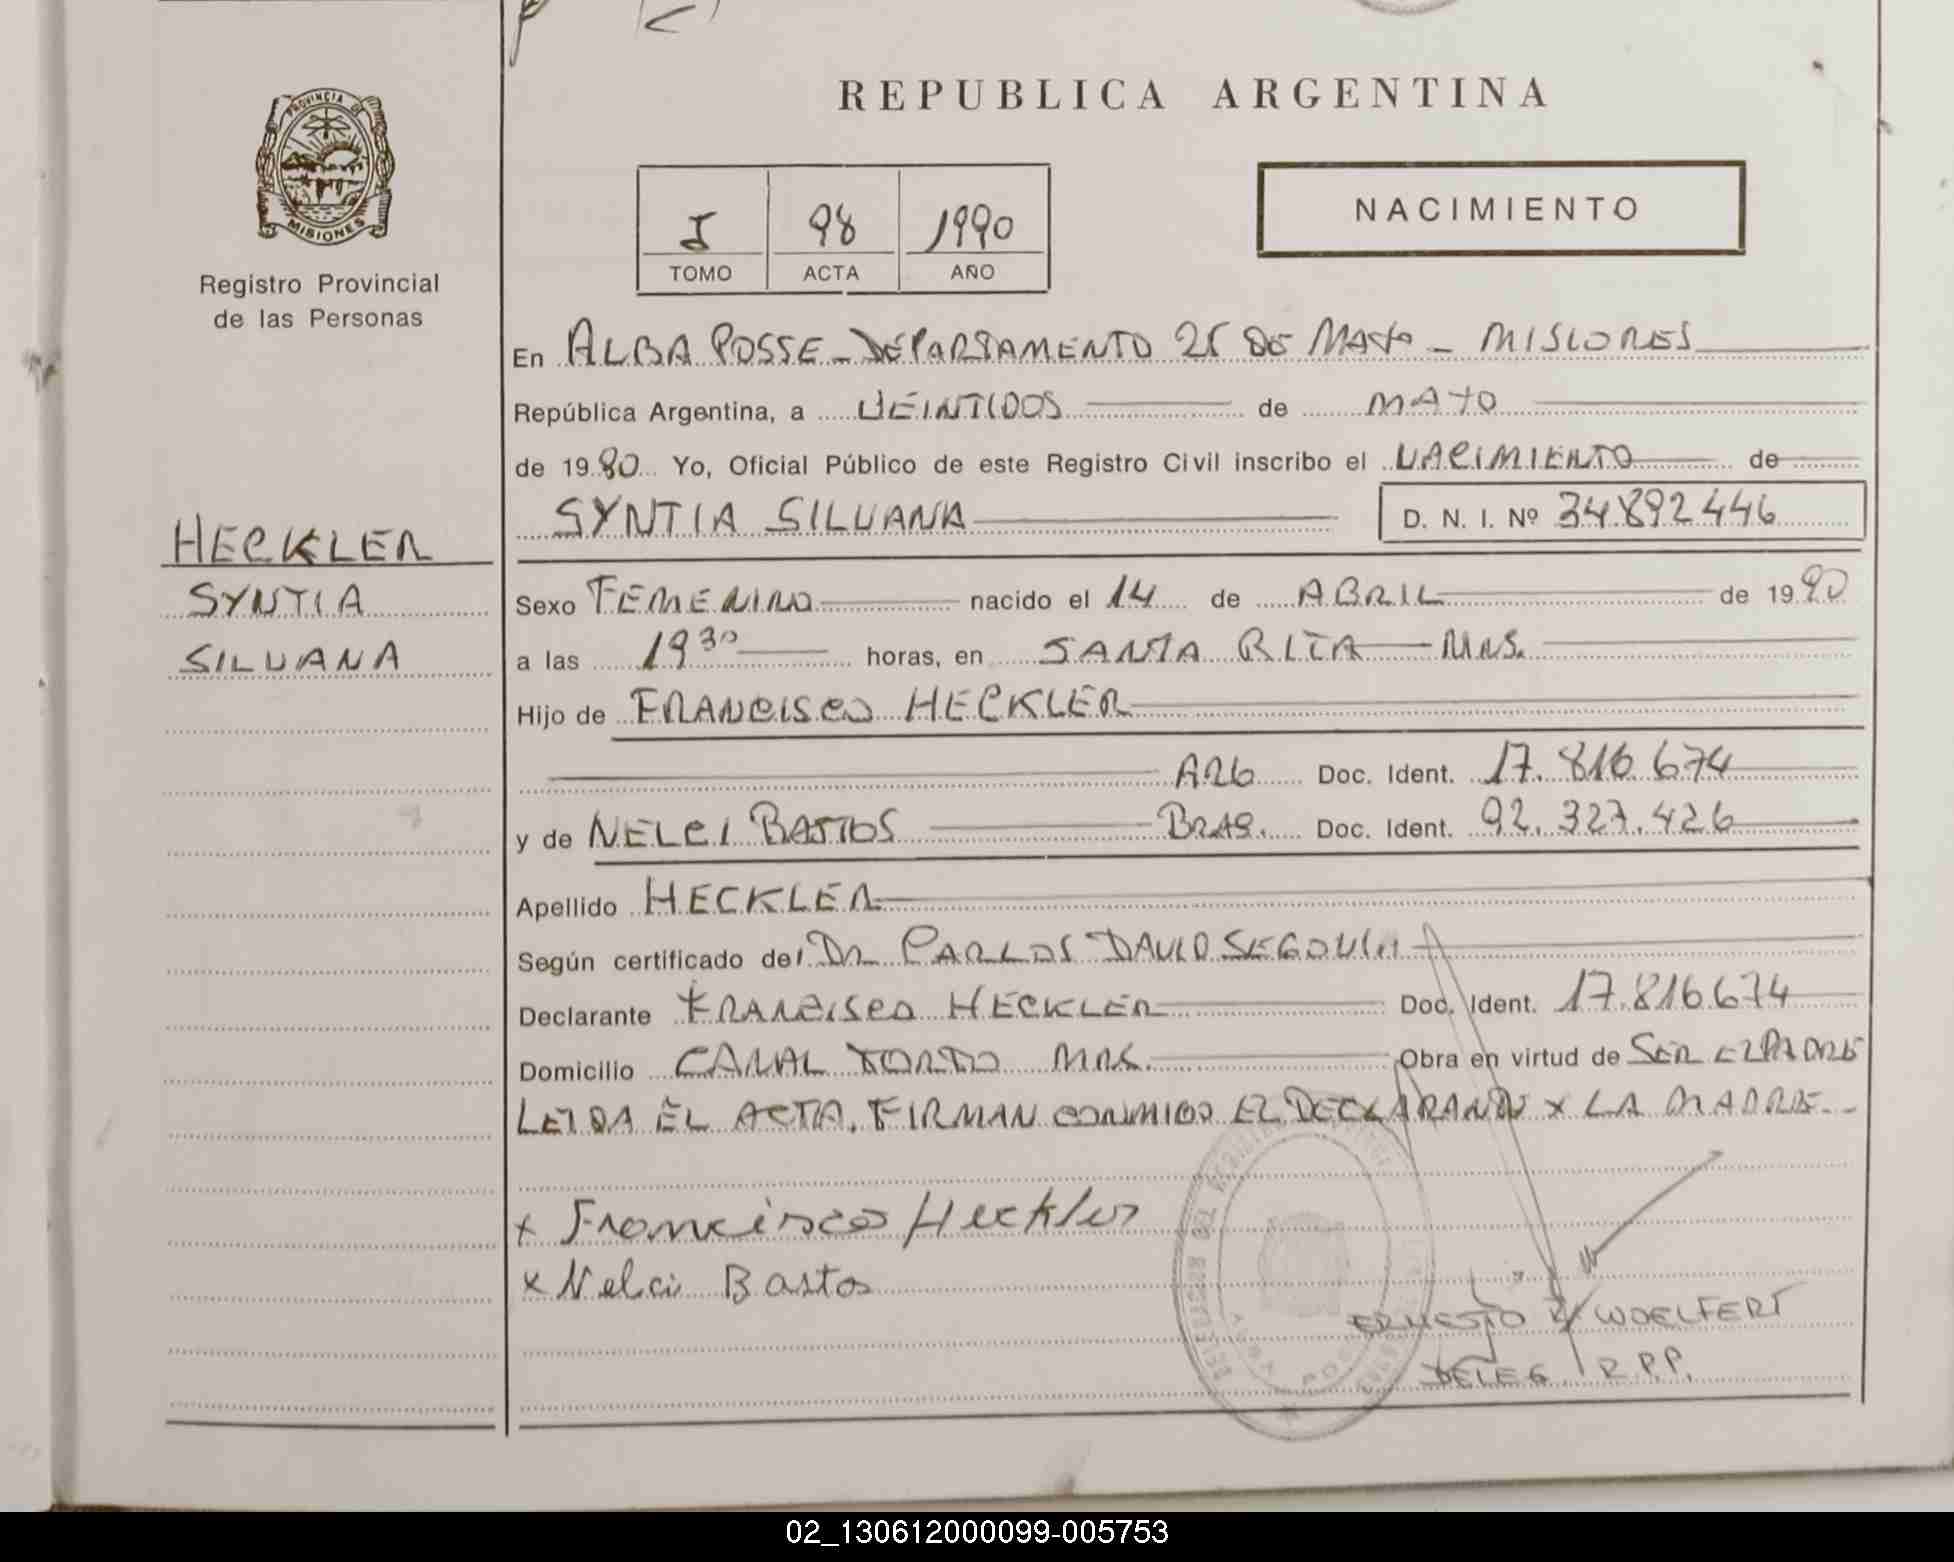 REPUBLICA ARGENTINA
PROVINCIA DE
MISIONES
Registro Provincial
de las Personas
I 98 1990
TOMO ACTA AÑO
NACIMIENTO
En ALBA POSSE - DEPARTAMENTO 25 DE MAYO - MISIONES
República Argentina, a VEINTIDOS de MAYO
de 19 90 Yo, Oficial Público de este Registro Civil inscribo el NACIMIENTO de
SYNTIA SILVANA D. N. I. Nº 34.892.446
HECKLER
SYNTIA
SILVANA
Sexo FEMENINO nacido el 14 de ABRIL de 19 90
a las 19 30 horas, en SANTA RITA Mns.
Hijo de FRANCISCO HECKLER
ARG Doc. Ident. 17.816.674
y de NELCI BASTOS BRAS. Doc. Ident. 92.327.426
Apellido HECKLER
Según certificado del Dr CARLOS DAVID SEGOVIA
Declarante FRANCISCO HECKLER Doc. Ident. 17.816.674
Domicilio CANAL TORTO Mns. Obra en virtud de SER EL PADRE
LEIDA EL ACTA, FIRMAN CONMIGO EL DECLARANTE Y LA MADRE.-
x Francisco Heckler
x Nelci Bastos
ALBA POSSE
ERNESTO WOELFERT
DELEG R.P.P.
02_130612000099-005753